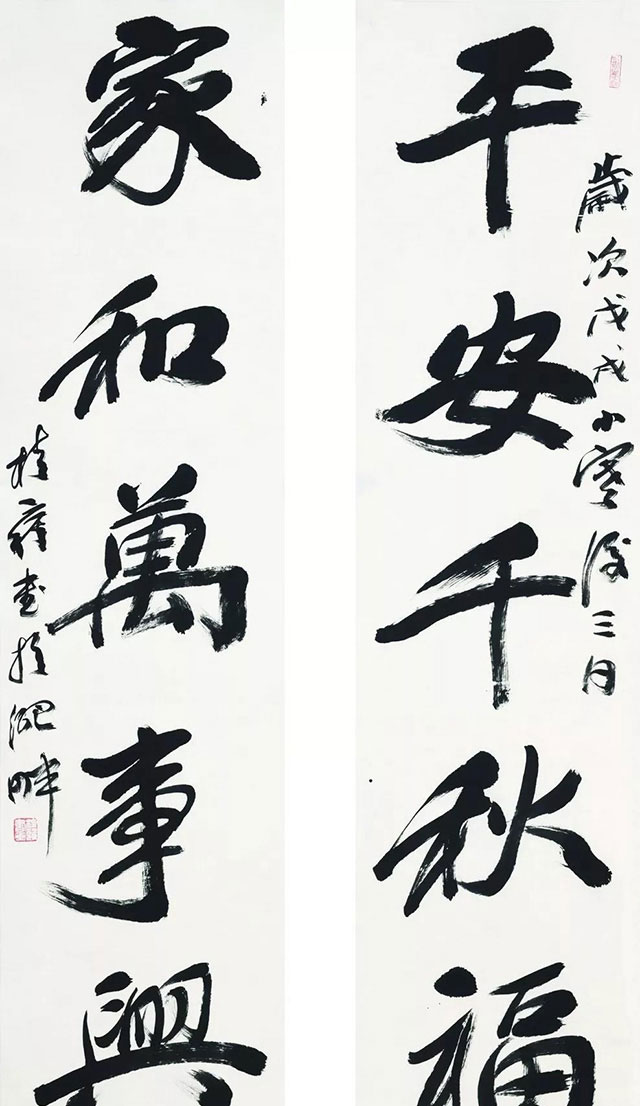 歲次戊戌小寒後三日
平安千秋福
家和萬事興
桂
書於
畔